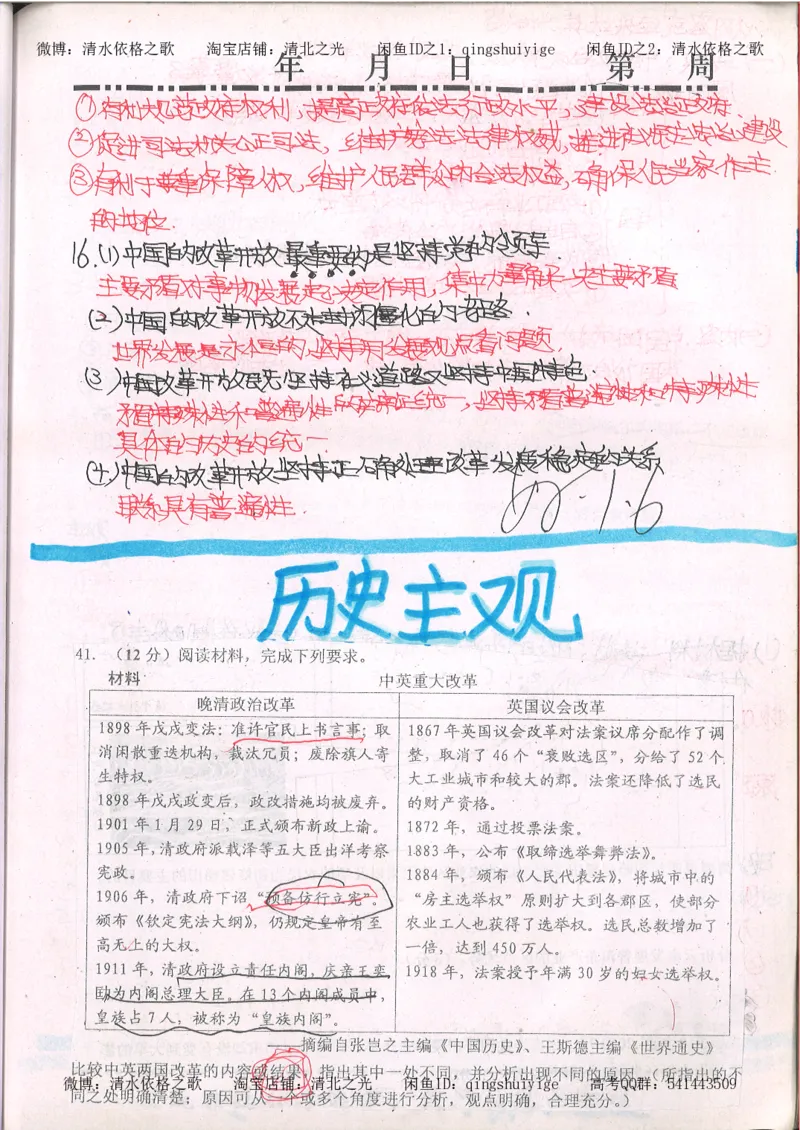 微博：清水依格之歌 淘宝店铺：清北之光 闲鱼ID之1：qingshuiyige 闲鱼ID之2：清水依格之歌
年 月 日 第 周
①有利于规范政府权利，提高政府依法行政水平，建设法治政府.
②促进司法机关公正司法，维护宪法法律权威，推进社会民主法治建设
③有利于尊重保障人权，维护人民群众的合法权益，确保人民当家作主
的地位.
16.(1)中国的改革开放最重要的是坚持党的领导
主要矛盾对事物发展起决定作用，集中力量解决主要矛盾
(2)中国的改革开放不走封闭僵化的老路.
世界发展是永恒的，坚持用发展观点看问题.
(3)中国改革开放既坚持社会主义道路又坚持中国特色
矛盾特殊性和普遍性的辩证统一，坚持矛盾普遍性和特殊性
具体的历史的统一
(4)中国的改革开放坚持正确处理改革发展稳定的关系
联系具有普遍性.
历史主观
41. （12分）阅读材料，完成下列要求。
材料 中英重大改革
晚清政治改革 英国议会改革
1898年戊戌变法：准许官民上书言事；取 1867年英国议会改革对法案议席分配作了调
消闲散重迭机构，裁汰冗员；废除旗人寄 整，取消了46个“衰败选区”，分给了52个
生特权。 大工业城市和较大的郡。法案还降低了选民
1898年戊戌政变后，政改措施均被废弃。 的财产资格。
1901年1月29日，正式颁布新政上谕。 1872年，通过投票法案。
1905年，清政府派载泽等五大臣出洋考察 1883年，公布《取缔选举舞弊法》。
宪政。 1884年，颁布《人民代表法》，将城市中的
1906年，清政府下诏“预备仿行立宪”， “房主选举权”原则扩大到各郡区，使部分
颁布《钦定宪法大纲》，仍规定皇帝有至 农业工人也获得了选举权。选民总数增加了
高无上的大权。 一倍，达到450万人。
1911年，清政府设立责任内阁，庆亲王奕 1918年，法案授予年满30岁的妇女选举权。
劻为内阁总理大臣。在13个内阁成员中，
皇族占7人，被称为“皇族内阁”。
——摘编自张岂之主编《中国历史》、王斯德主编《世界通史》
比较中英两国改革的内容或结果，指出其中一处不同，并分析出现不同的原因。（所指出的不
微博：清水依格之歌 淘宝店铺：清北之光 闲鱼ID之1：qingshuiyige 高考QQ群：541443509
同之处明确清楚；原因可从一个或多个角度进行分析，观点明确，合理充分。）